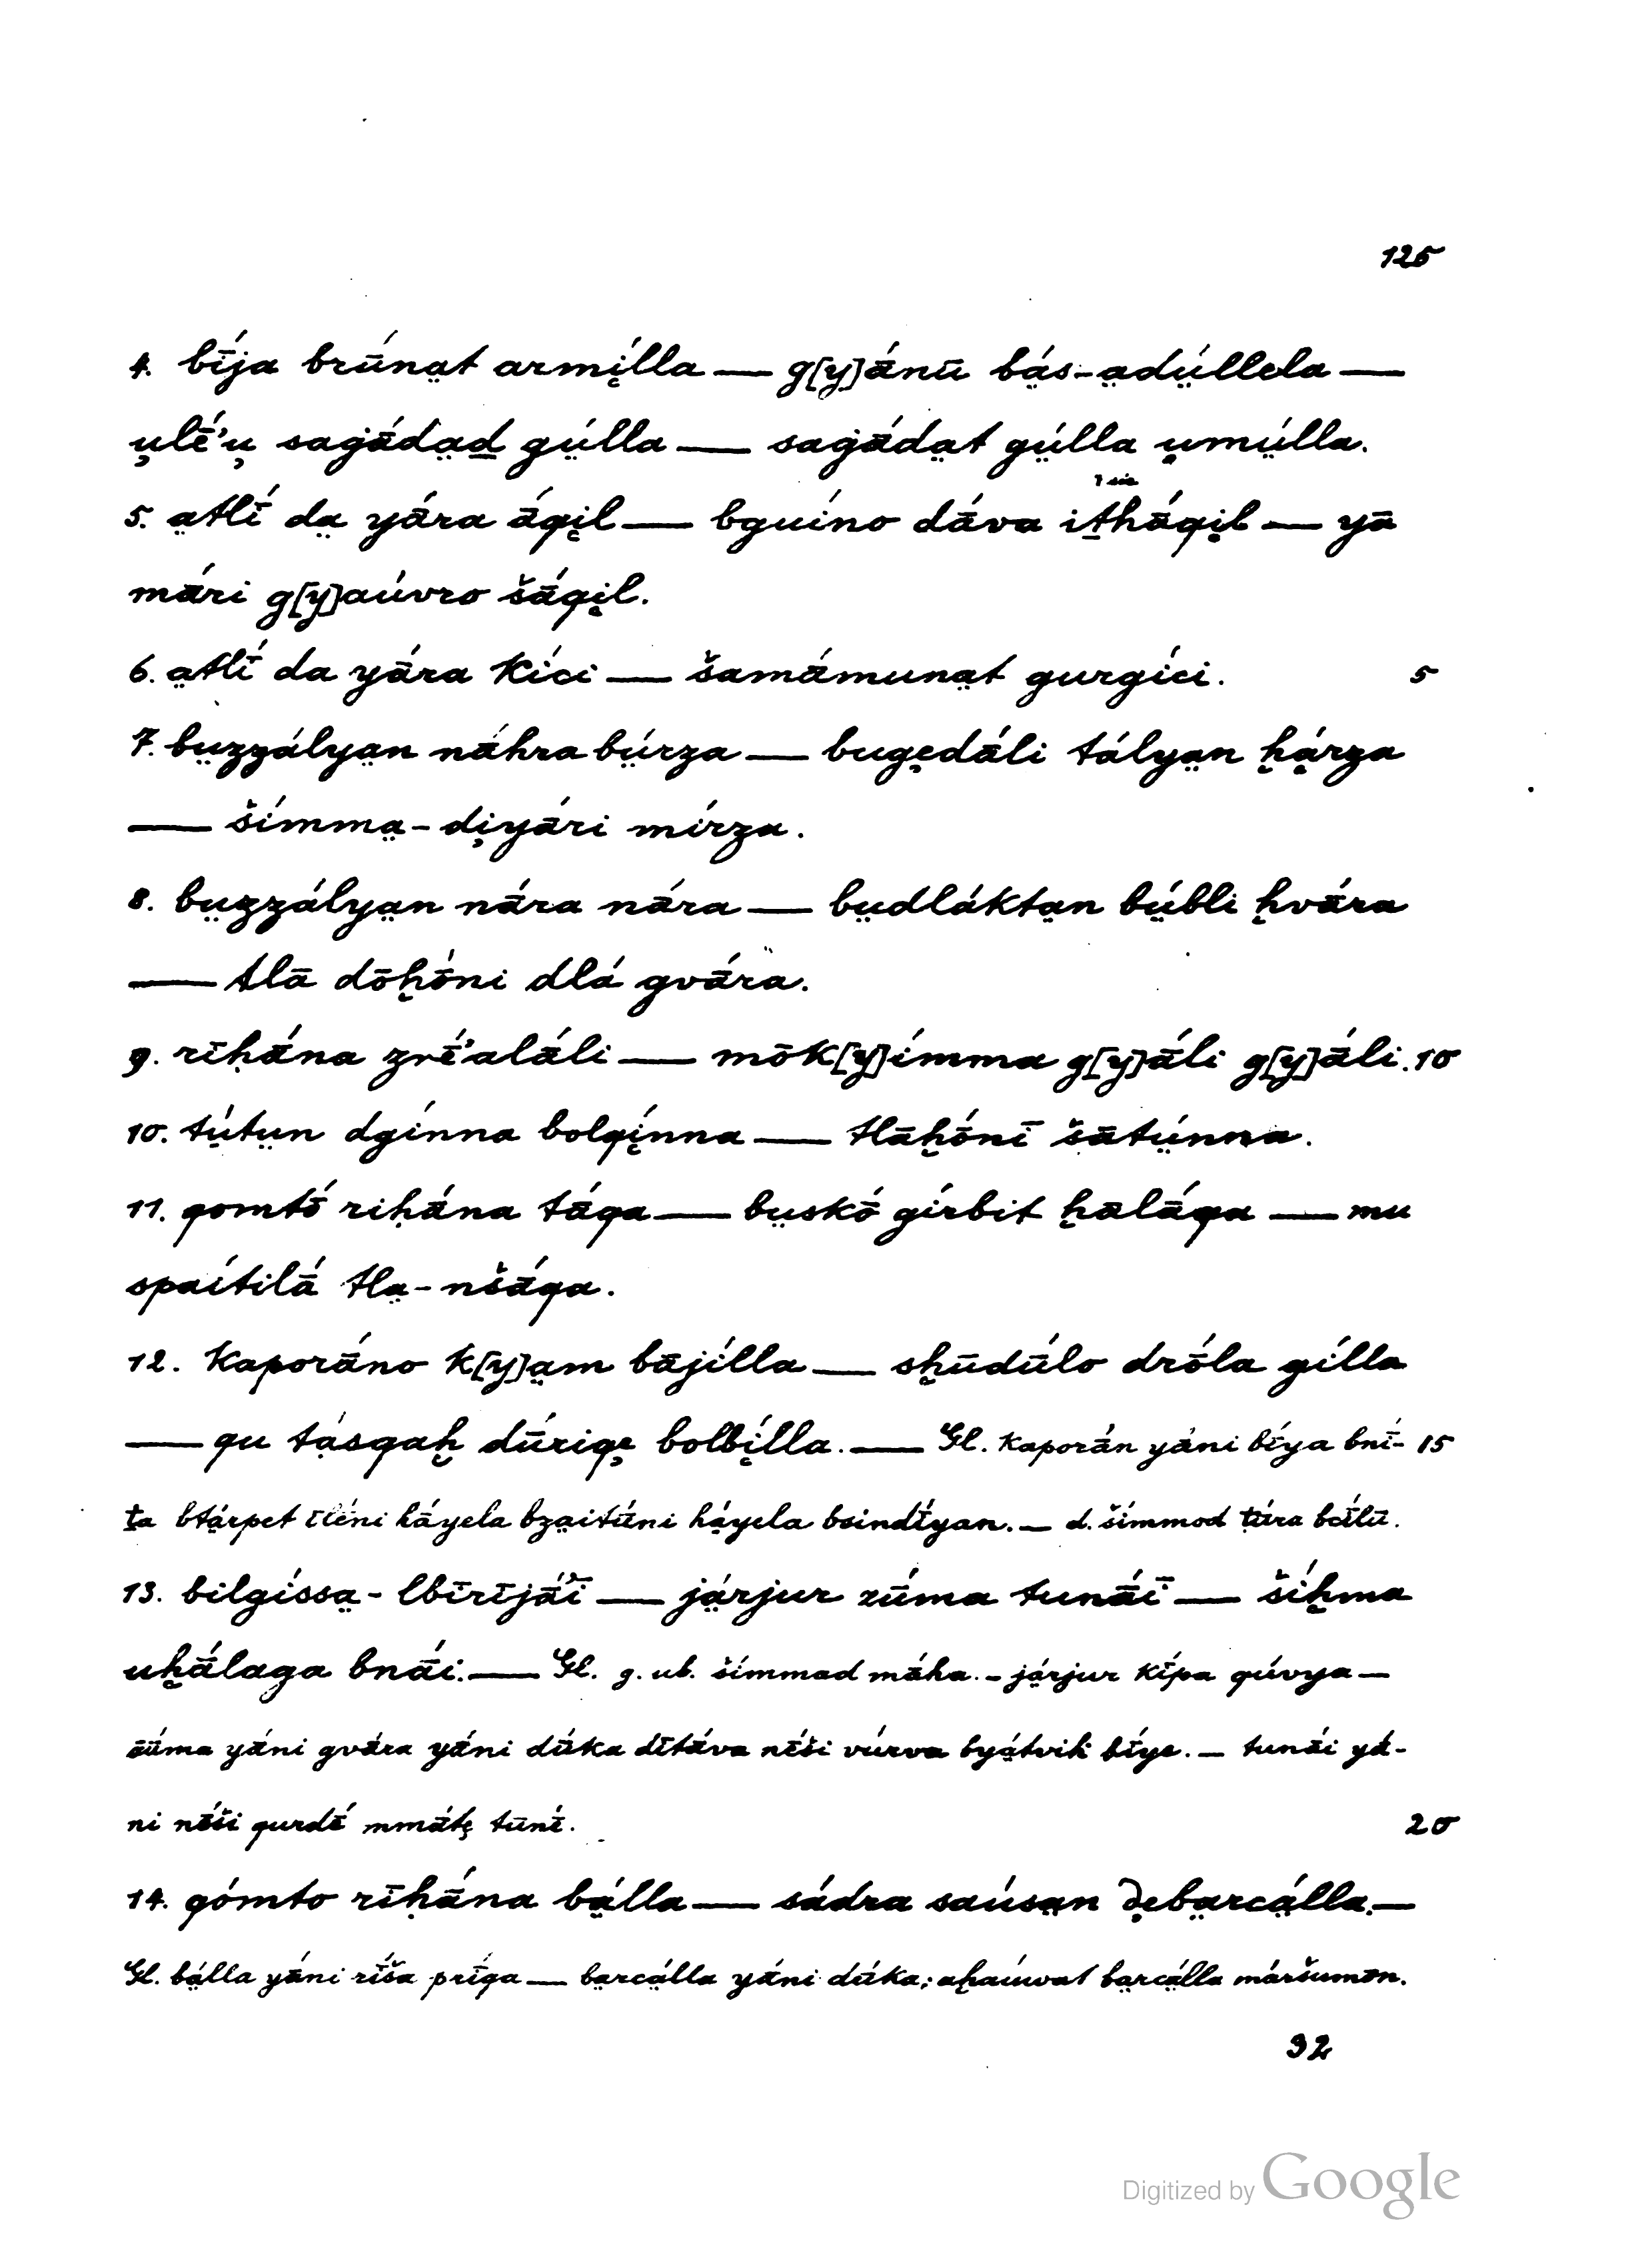 125
4. bī́ja brū́na̤t armí̜lla — g[y]ā́nū bá̤s-a̤dṳ́llela —
u̜lḗʾu̜ saġā́da̤ḏ gṳ́lla — saġā́da̤t gṳ́lla u̜mṳ́lla.
ī sic
5. a̤tlī́ da̤ yā́ra ā́qi̜l — bguíno dā́va iṯhā́qi̜l — yā
mā́ri g[y]aúvro šā́qi̜l. 
6. a̤tlī́ da yā́ra kíci — šamā́muna̤t gurgíci. 5
7. bṳzzálya̤n nā́hra bṳ́rza — buge̜dā́li tálya̤n h̬á̜rza
— šímma̤-di̜yā́ri mírza.
8. bṳzzálya̤n nā́ra nā́ra — bṳdlákta̤n bṳ́bli h̬vā́ra
— tlā dōh̬ṓni dlá gvā́ra.
9. rīḥā́na zrḗʾalā́li — mōk[y]ímma g[y]ā́li g[y]ā́li. 10
10. tṳ́tṳn dgínna bolqí̜nna — tlāh̬ṓnī šātṳ́nna.
11. qomtṓ riḥā́na tā́qa — bṳskṓ gírbit h̬ālā́qa — mu
spaítilā́ tla̤-nšā́qa.
12. kaporā́no k[y]a̤m bājílla — sh̬ūdū́lo drṓla gílla
— qu ṭásqah̬ dū́riqe̜ bolbí̜lla. — Gl. kaporā́n yā́ni bī́ya bnī́- 15
ṯa btá̤rpet īlḗni hā́yela bza̤itū́ni há̤yela bsindī́yan. — d. šímmod ṭū́ra bcī́lū.
13. bilgíssa̤-lbīrījā́ī — já̤rjur zū́ma tunā́ī — šíh̬ma
uh̬ā́laga bnā́i. — Gl. g. ub. šímmad mā́ha. – já̤rjur kī́pa qúvya —
zū́ma yā́ni gvā́ra yā́ni dū́ka dītā́va nḗši vúrva byá̤tvih bī́ye. — tunā́i yā́-
ni nḗši qurdḗ mmā́te̜ tūnḗ. 20
14. qómto rīḥā́na bá̤lla — sádra saúsa̤n de̜ba̤rcá̤lla. —
Gl. bá̤lla yā́ni rī́ša prī́qa — ba̤rcá̤lla yā́ni dū́ka; ah̬aúwat ba̤rcá̤lla máršumon.
32
Digitized by Google